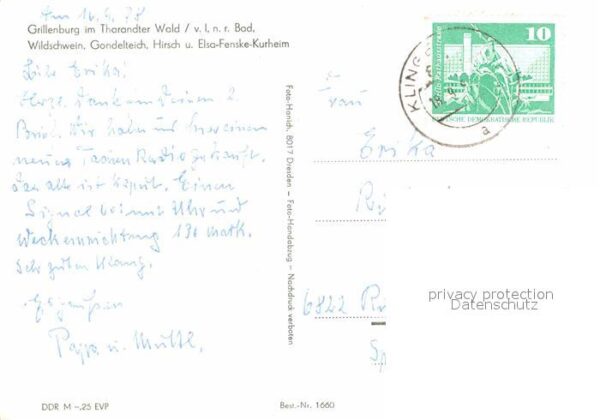 Am 16.4.78
Grillenburg im Tharandter Wald / v. l. n. r. Bad,
Wildschwein, Gondelteich, Hirsch u. Elsa-Fenske-Kurheim
Liebe Erika.
Herzl. Dank Deinen 2.
Brief. Wir haben uns einen
neuen Radio gekauft.
Das alte ist kaput. Einen
Signal mit Uhr und
Weckeinrichtung 130 Mark.
Sehr guten Klang.
Es grüßen
Papa u. Mutti.
DDR M –,25 EVP
Foto-Hanich, 8017 Dresden – Foto-Handabzug – Nachdruck verboten
Best.-Nr. 1660
KLING
10
DEUTSCHE DEMOKRATISCHE REPUBLIK
Frau
Erika
6822
privacy protection
Datenschutz